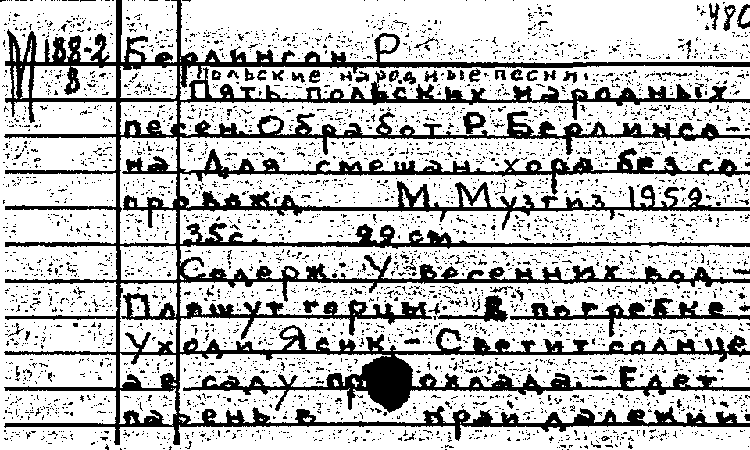 480
М 188-2
В
Берлинсон Р
Польские народные песни.
Пять польских народных
песен. Обработ. Р. Берлинсо-
на. Для смешан. хора без со
провожд. М., Музгиз, 1959.
35с. 22 см.
Содерж.: У весенних вод. -
Пляшут горцы. - В погребке. -
Уходи, Ясик. - Светит солнце
а в саду прохлада. - Едет
парень в край далекий